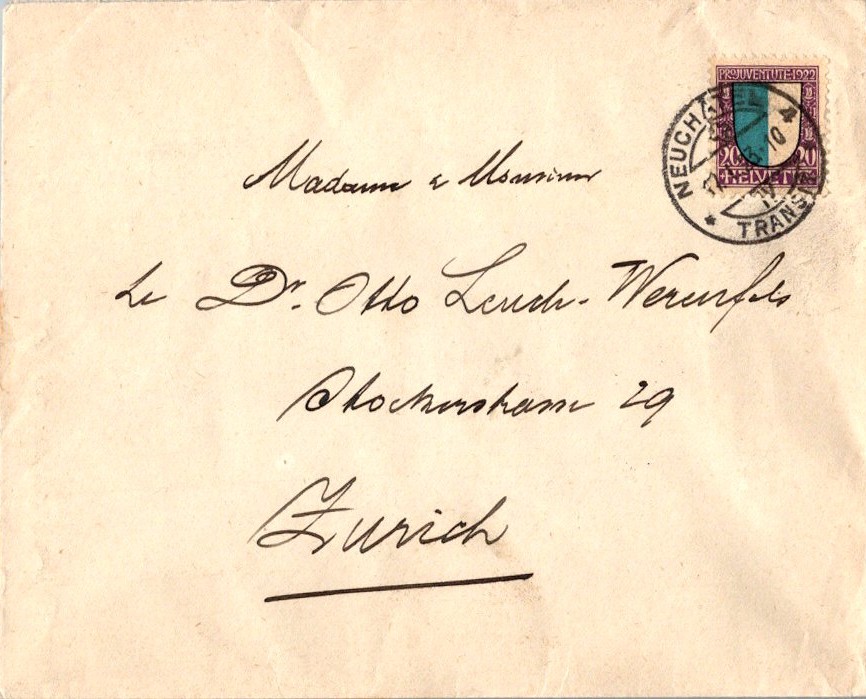 PRO JUVENTUTE·1922
20 20
HELVETIA
NEUCHATEL 4
TRANSM
Madame & Monsieur
Le Dr. Otto Leuch-Werenfels
Stockerstrasse 29
Zurich